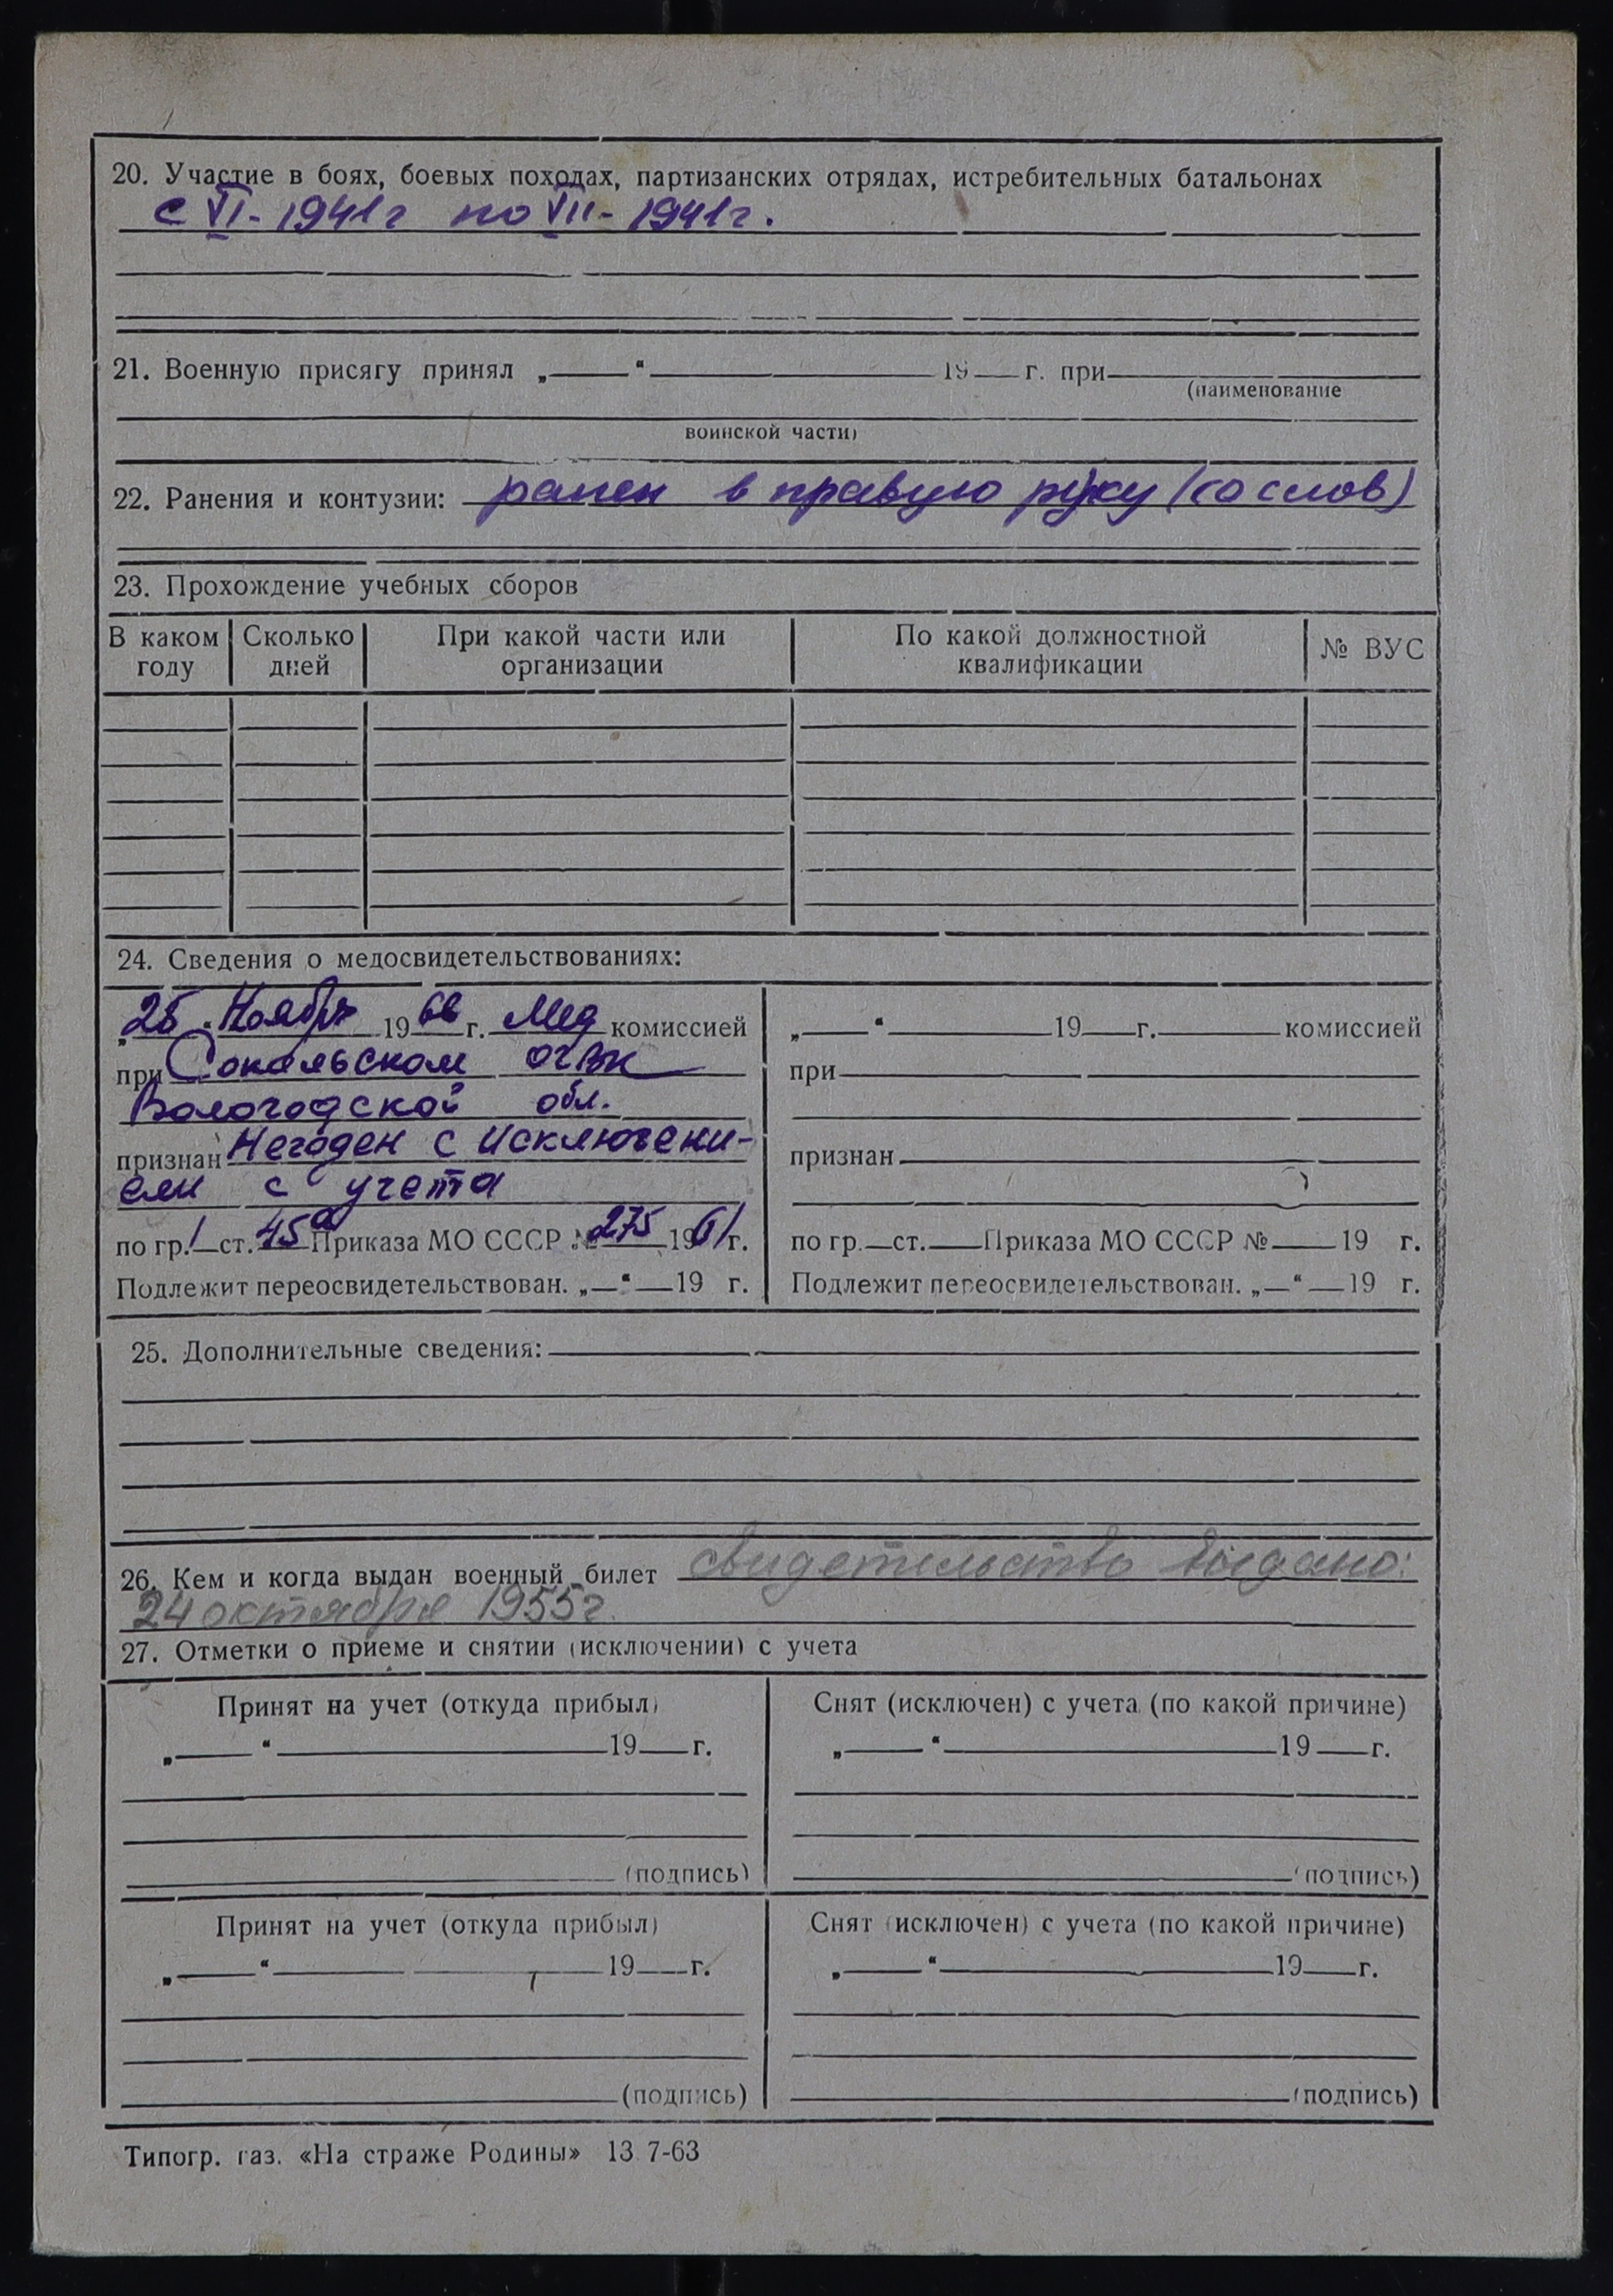 20. Участие в боях, боевых походах, партизанских отрядах, истребительных батальонах
с VI - 1941 г по VII - 1941 г.
21. Военную присягу принял „ “ 19 г. при
(наименование
воинской части)
22. Ранения и контузии: ранен в правую руку (со слов)
23. Прохождение учебных сборов
В каком году Сколько дней При какой части или организации По какой должностной квалификации № ВУС
24. Сведения о медосвидетельствованиях:
„25 “ Ноября 1966 г. Мед комиссией
при Сокольском ОГВК
Вологодской обл.
признан Негоден с исключени-
ем с учета
по гр. 1 ст. 45а Приказа МО СССР № 275 1961 г.
Подлежит переосвидетельствован. „ “ 19 г.
„ “ 19 г. комиссией
при
признан
по гр. ст. Приказа МО СССР № 19 г.
Подлежит переосвидетельствован. „ “ 19 г.
25. Дополнительные сведения:
26. Кем и когда выдан военный билет свидетельство выдано:
24 октября 1955 г.
27. Отметки о приеме и снятии (исключении) с учета
Принят на учет (откуда прибыл)
„ “ 19 г.
(подпись)
Снят (исключен) с учета (по какой причине)
„ “ 19 г.
(подпись)
Принят на учет (откуда прибыл)
„ “ 19 г.
(подпись)
Снят (исключен) с учета (по какой причине)
„ “ 19 г.
(подпись)
Типогр. газ. «На страже Родины» 13 7-63